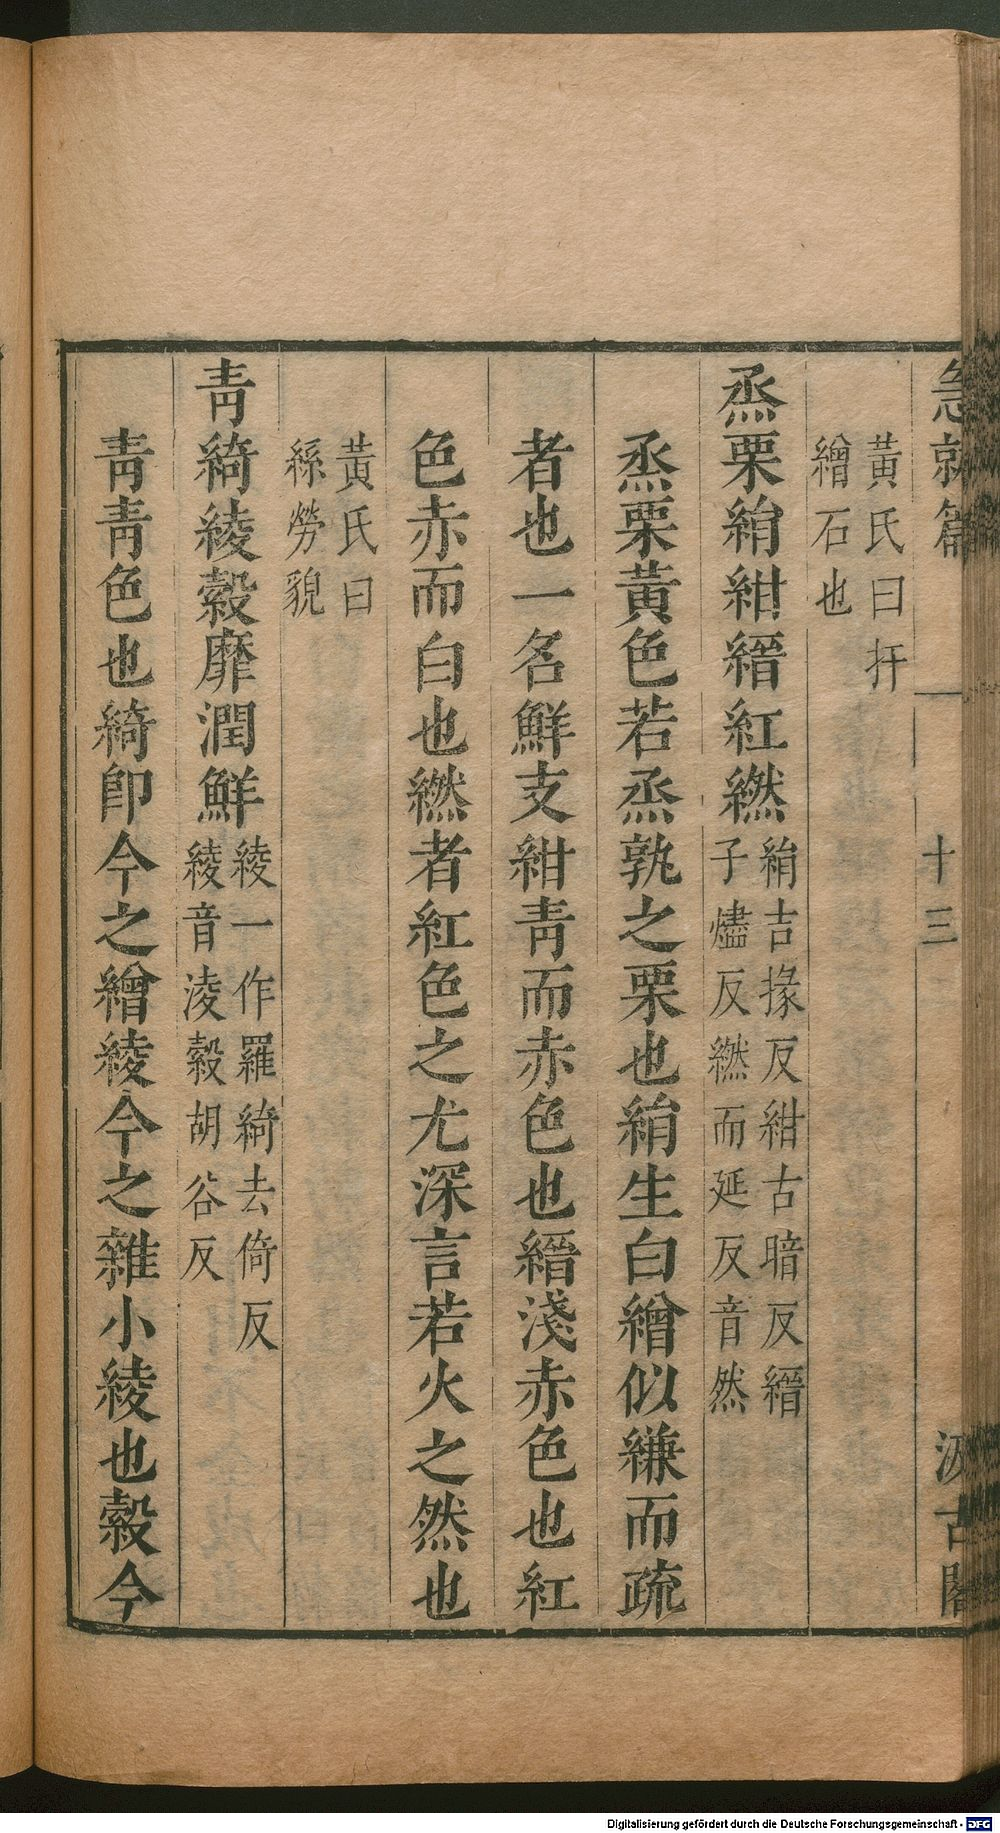 急就篇 十三 汲古閣
黃氏曰扞
繒石也
烝栗絹紺縉紅繎
絹吉掾反紺古暗反縉
子燼反繎而延反音然
烝栗黃色若烝孰之栗也絹生白繒似縑而疏
者也一名鮮支紺靑而赤色也縉淺赤色也紅
色赤而白也繎者紅色之尤深言若火之然也
黃氏曰
繇勞貌
靑綺綾縠靡潤鮮
綾一作羅綺去倚反
綾音淩縠胡谷反
靑靑色也綺卽今之繒綾今之雜小綾也縠今
Digitalisierung gefördert durch die Deutsche Forschungsgemeinschaft - DFG